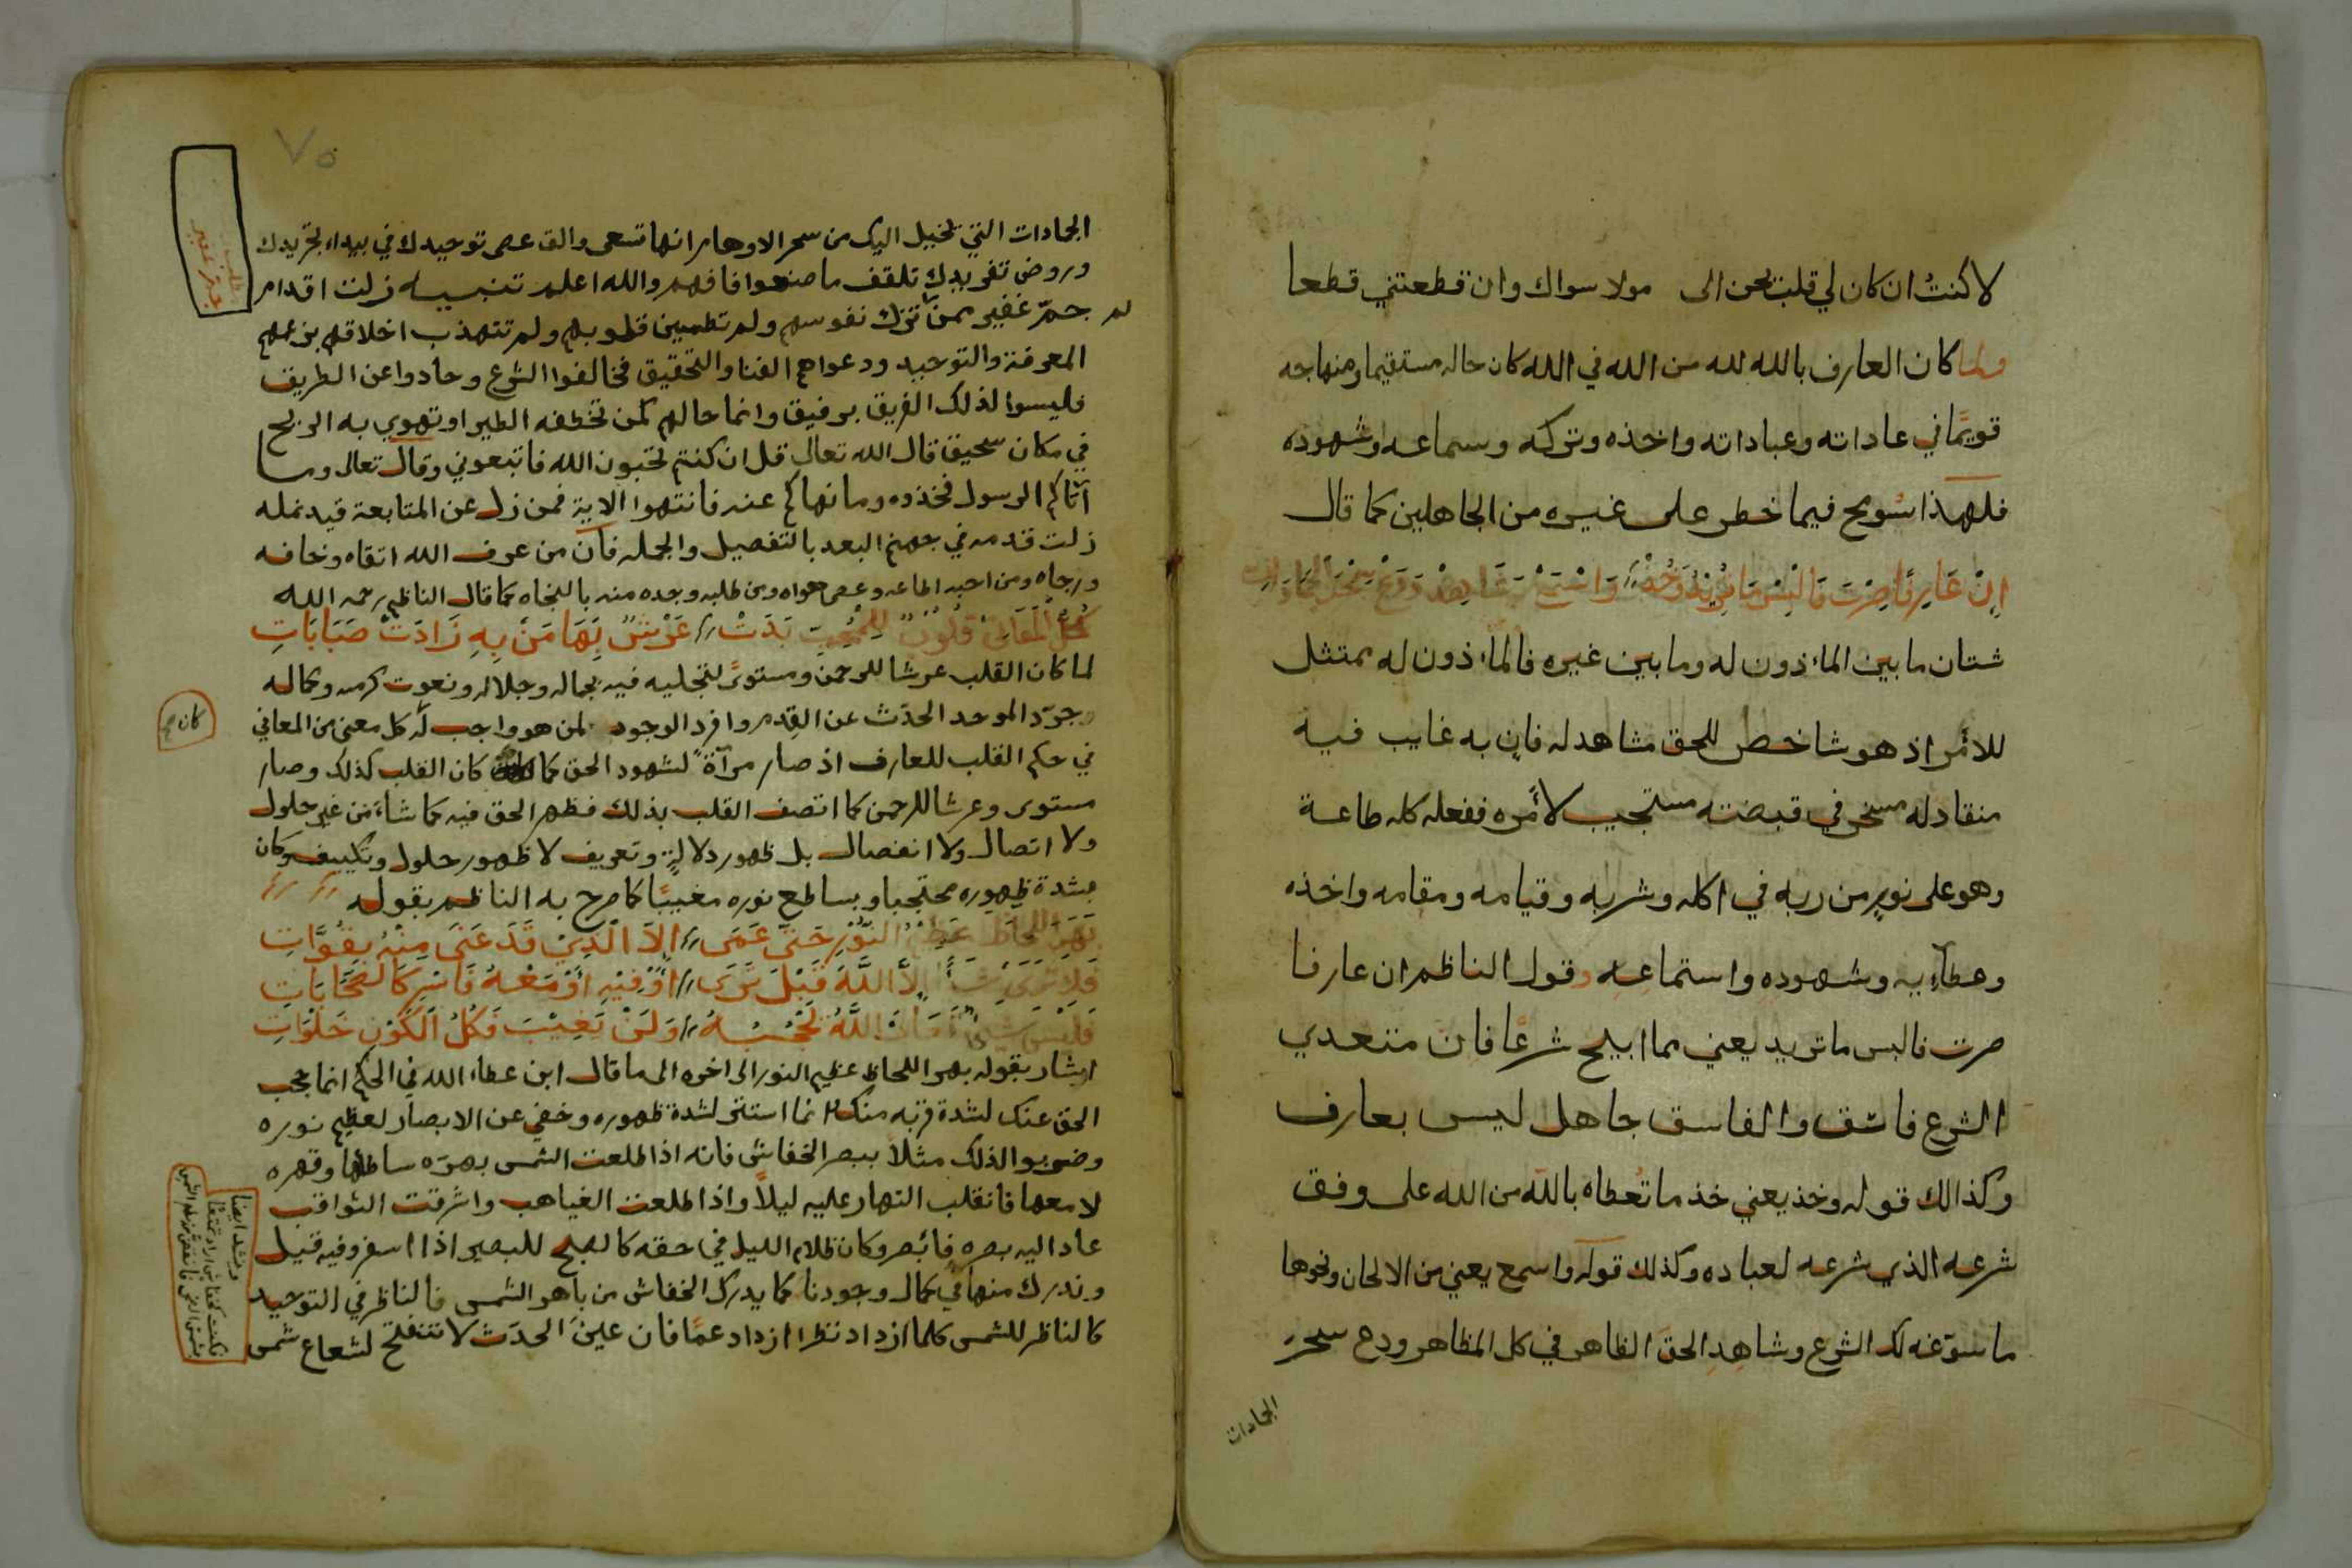 لا كنتُ ان كان لي قلب يحن الى مولا سواك وان قطعتني قطعا
ولما كان العارف بالله لله من الله في الله كان حاله مستقيما ومنهاجه
قويمًا في عاداته وعباداته واخذه وتركه وسماعه وشهوده
فلهذا سُومح فيما خطر على غيره من الجاهلين كما قال
إنْ عَارِفًا صِرْتَ فَالْبِسْ مَا تُرِيْدُ وَخُذْ وَاسْمَعْ وَشَاهِدْ وَدَعْ سِحْرَ الجَمَادَاتِ
شتان ما بين الماذون له وما بين غيره فالماذون له ممتثل
للأمر اذ هو شاخص للحق مشاهد له فانٍ به غايب فيه
منقاد له مسخر في قبضته مستجيب لأمره ففعله كله طاعة
وهو على نورٍ من ربه في اكله وشربه وقيامه ومقامه واخذه
وعطآءيه وشهوده واستماعه وقول الناظم ان عارفا
صرت فالبس ما تريد يعني مما ابيح شرعًا فان متعدي
الشرع فاسق والفاسق جاهل ليس بعارف
وكذالك قوله وخذ يعني خذ ما تُعطاه بالله من الله على وفق
شرعه الذي شرعه لعباده وكذلك قوله واسمع يعني من الالحان ونحوها
ما سوّغه لك الشرع وشاهِدِ الحق الظاهر في كل المظاهر ودع سحرَ
الجمادات
٧٥
الجمادات التي تخيل اليك من سحر الاوهام انها تسعى والق عصى توحيدك في بيداء تجريدك
وروض تفريدك تلقف ما صنعوا فافهم والله اعلم تنبيه زلت اقدام
جمّ غفير ممن لم تزك نفوسهم ولم تطمين قلوبهم ولم تتهذب اخلاقهم بزعمهم
المعرفة والتوحيد ودعواهم الفنا والتحقيق فخالفوا الشرع وحادوا عن الطريق
فليسوا لذلك الفريق برفيق وانما حالهم كمن تخطفه الطير او تهوي به الريح
في مكان سحيق قال الله تعالى قل ان كنتم تحبون الله فاتبعوني وقال تعالى وما
آتاكم الرسول فخذوه وما نهاكم عنه فانتهوا الاية فمن زل عن المتابعة قيد نمله
زلت قدمه في جهنم البعد بالتفصيل والجمله فان من عرف الله اتقاه وخافه
ورجاه ومن احبه اطاعه وعصى هواه ومن طلبه وجده منه بالنجاه كما قال الناظم رحمه الله
كُلُّ المَعَانِي قُلُوْبٌ لِلْمُحِبِّ بَدَتْ عَرْشٌ بِهَا مَنْ بِهِ زَادَتْ صَبَابَاتِ
لما كان القلب عرشا للرحمن ومستوىً لتجليه فيه بجماله وجلاله ونعوت كرمه وكماله
وجرّد الموحد الحدَث عن القِدم وافرد الوجود لمن هو واجب له كل معنى من المعاني
كان
في حكم القلب للعارف اذ صار مرآةً لشهود الحق كما كان القلب كذلك وصار
مستوى وعرشا للرحمن كما اتصف القلب بذلك فظهر الحق فيه كما شاء من غير حلول
ولا اتصال ولا انفصال بل ظهور دلالةٍ وتعريف لا ظهور حلول وتكييف وكان
بشدة ظهوره محتجبا وبساطع نوره مغيبًا كما صرح به الناظم بقوله
بَهَرَ اللِّحَاظَ عَظِيْمُ النُّوْرِ حَتَّى عَمَى إلاَّ الّذِيْ قَدْ عَنَى مِنْهُ بِقُوَّاتِ
فَلاَ تَرَى شَيْأً إلاَّ اللَّهَ قَبْلَ تَرَى أوْ فِيْهِ أوْ مَعْهُ فَاسْرِ كَالسَّحَابَاتِ
فَلَيْسَ شَيْئٌ اللَّهُ يَحْجُبُهُ وَلَنْ يَغِيْبَ فَكُلُّ الكَوْنِ خَلْوَاتِ
اشار بقوله بهر اللحاظ عظيم النور الى اخره الى ما قال ابن عطاء الله في الحكم انما حجب
الحق عنك لشدة قربه منك انما استتر لشدة ظهوره وخفي عن الابصار لعظيم نوره
وضربوا لذلك مثلا ببصر الخفاش فانه اذا طلعت الشمس بهره ساطعها وقهره
لامعها فانقلب النهار عليه ليلاً واذا طلعت الغياهب واشرقت الثواقب
عاد اليه بصره فابصر وكان ظلام الليل في حقه كالصبح للبصير اذا اسفر وفيه قيل
وندرك منها في كمال وجودنا كما يدرك الخفاش من باهر الشمس فالناظر في التوحيد
كالناظر للشمس كلما ازداد نظرا ازداد عمًا فان عينَ الحدَث لا تنفتح لشعاع شمس